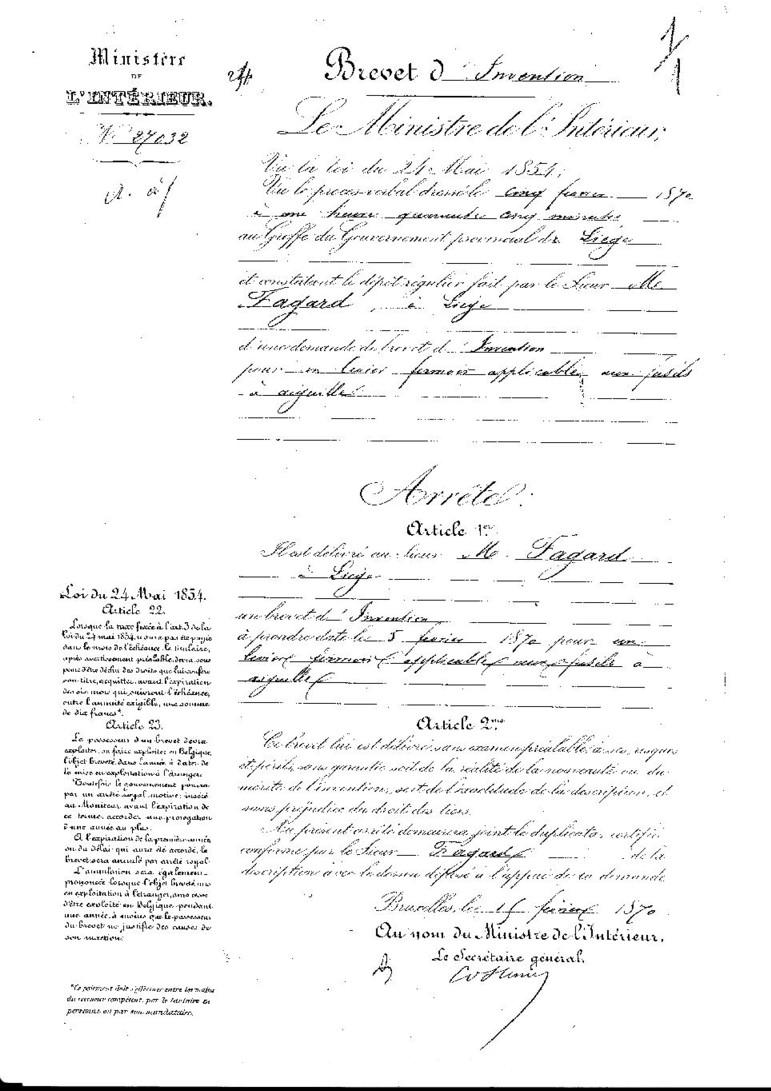 Ministère
DE
L'INTÉRIEUR.
N° 27032
Brevet d'Invention
Le Ministre de l'Intérieur,
Vu la loi du 24 Mai 1854;
Vu le procès-verbal dressé le cinq février 1870
à une heure quarante cinq minutes
au Greffe du Gouvernement provincial de Liége
et constatant le dépôt régulier fait par le Sieur M.
Fagard, à Liége
d'une demande de brevet d'Invention
pour un levier fermoir applicable aux fusils
à aiguille
Arrête:
Article 1er
Il est délivré au Sieur M. Fagard
à Liége
un brevet d'Invention
à prendre date le 5 février 1870 pour un
levier fermoir applicable aux fusils à
aiguille
Article 2me
Ce brevet lui est délivré sans examen préalable, à ses risques
et périls, sans garantie soit de la réalité, de la nouveauté ou du
mérite de l'invention, soit de l'exactitude de la description, et
sans préjudice du droit des tiers.
Au présent arrêté demeurera joint le duplicata, certifié
conforme par le Sieur Fagard de la
description avec le dessin déposé à l'appui de sa demande
Bruxelles, le 15 février 1870
Au nom du Ministre de l'Intérieur,
Le Secrétaire général,
Loi du 24 Mai 1854.
Article 22.
Lorsque la taxe fixée à l'art. 3 de la
loi du 24 mai 1854, n'aura pas été payée
dans le mois de l'échéance, le titulaire,
après avertissement préalable, devra, sous
peine d'être déchu des droits que lui confère
son titre, acquitter, avant l'expiration
des six mois qui suivront l'échéance,
outre l'annuité exigible, une somme
de dix francs*.
Article 23.
Le possesseur d'un brevet devra
exploiter, ou faire exploiter en Belgique,
l'objet breveté, dans l'année à dater de
la mise en exploitation à l'étranger.
Toutefois, le gouvernement pourra,
par un arrêté royal motivé, inséré
au Moniteur avant l'expiration de
ce terme, accorder une prorogation
d'une année au plus.
A l'expiration de la première année
ou du délai qui aura été accordé, le
brevet sera annulé par arrêté royal.
L'annulation sera également
prononcée lorsque l'objet breveté, mis
en exploitation à l'étranger, aura cessé
d'être exploité en Belgique pendant
une année, à moins que le possesseur
du brevet ne justifie des causes de
son inaction.
*Ce paiement doit s'effectuer entre les mains
du receveur compétent, par le titulaire en
personne, ou par son mandataire.